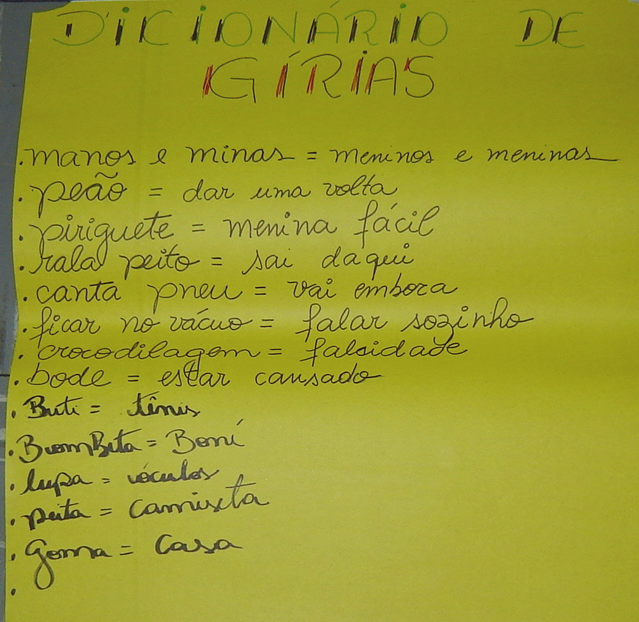 DICIONÁRIO DE
GÍRIAS
.manos e minas = meninos e meninas
.peão = dar uma volta
.piriguete = menina fácil
.rala peito = sai daqui
.canta pneu = vai embora
.ficar no vácuo = falar sozinho
.crocodilagem = falsidade
.bode = estar cansado
.Buti = tênis
.BromBeta = Boné
.lupa = óculos
.peita = camiseta
.Goma = Casa
.